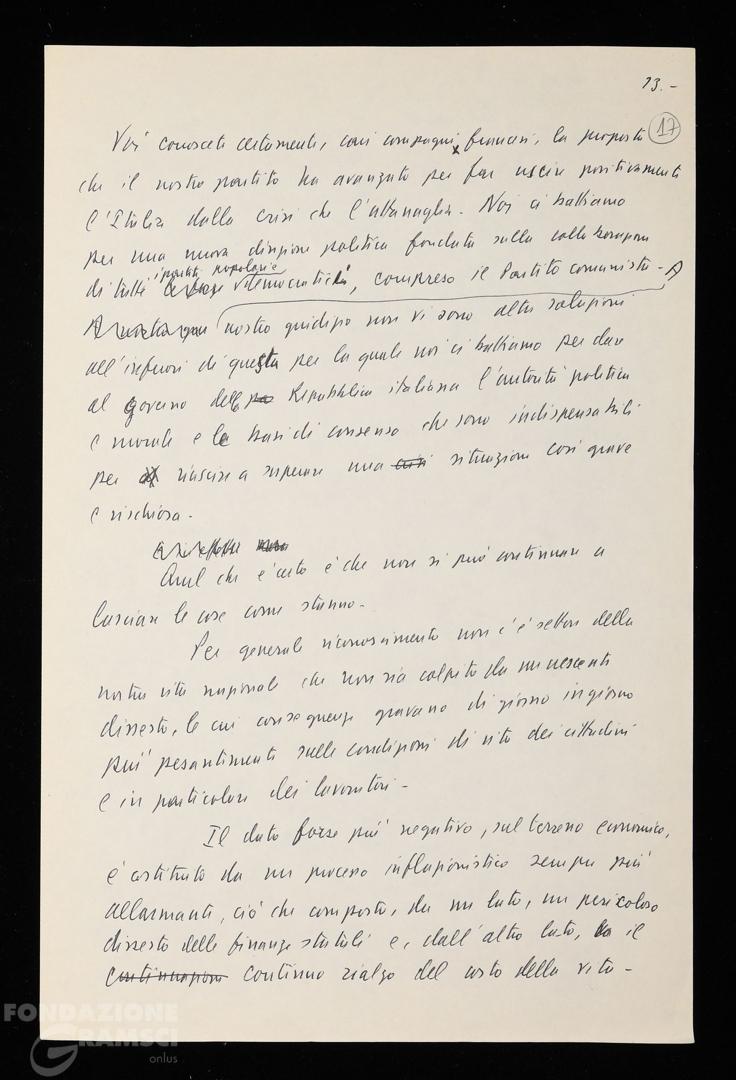 13.-
17
Voi conoscete certamente, cari compagni francesi, la proposta
che il nostro partito ha avanzato per far uscire positivamente
l'Italia dalla crisi che l'attanaglia. Noi ci battiamo
per una nuova direzione politica fondata sulla collaborazione
i partiti popolari e
di tutte le forze democratici, compreso il Partito comunista - A
A nostro giudizio non vi sono altre soluzioni
all'infuori di questa per la quale noi ci battiamo per dare
al governo della Repubblica italiana l'autorità politica
e morale e le basi di consenso che sono indispensabili
per riuscire a superare una crisi situazione così grave
e rischiosa.
Quel che è certo è che non si può continuare a
lasciare le cose come stanno.
Per generale riconoscimento non c'è settore della
nostra vita nazionale che non sia colpito da un crescente
dissesto, le cui conseguenze gravano di giorno in giorno
più pesantemente sulle condizioni di vita dei cittadini
e in particolare dei lavoratori.
Il dato forse più negativo, sul terreno economico,
è costituito da un processo inflazionistico sempre più
allarmante, ciò che comporta, da un lato, un pericoloso
dissesto delle finanze statali e, dall'altro lato, il
continuazione continuo rialzo del costo della vita -
FONDAZIONE
GRAMSCI
onlus